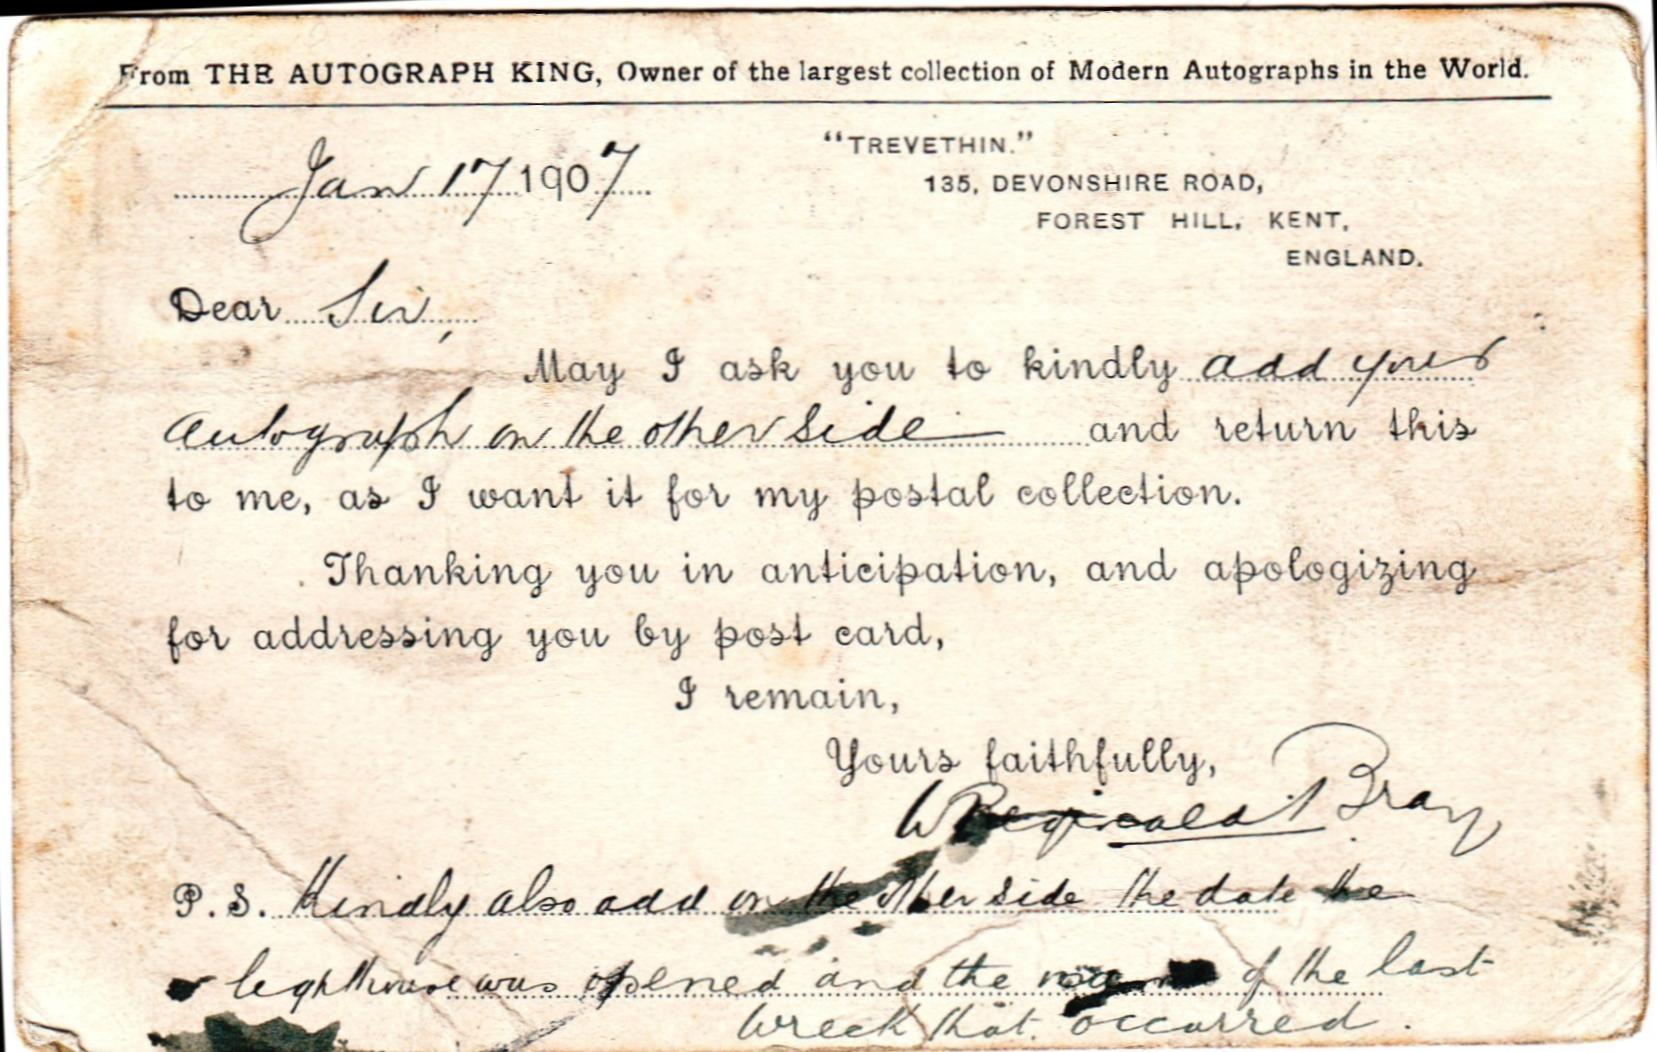 From THE AUTOGRAPH KING, Owner of the largest collection of Modern Autographs in the World.
Jan 17 1907
"TREVETHIN."
135, DEVONSHIRE ROAD,
FOREST HILL, KENT,
ENGLAND.
Dear Sir,
May I ask you to kindly add your
autograph on the other side and return this
to me, as I want it for my postal collection.
Thanking you in anticipation, and apologizing
for addressing you by post card,
I remain,
Yours faithfully,
W Reginald Bray
P.S. Kindly also add on the other side the date the
lighthouse was opened and the name of the last
wreck that occurred.